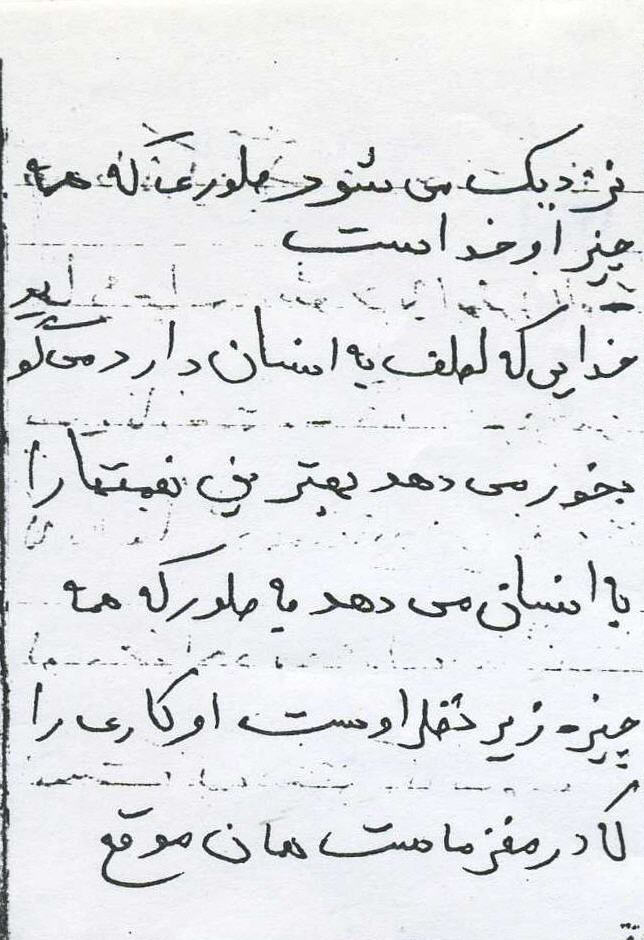 نزدیک می شود طوری که همه
چیز او خداست
خدایی که لطف به انسان دارد می گو
ید
بخور می دهد بهترین نعمتها را
به انسان می دهد به طور که همه
چیز زیر نظر اوست او کاری را
کا در مغز ماست همان موقع